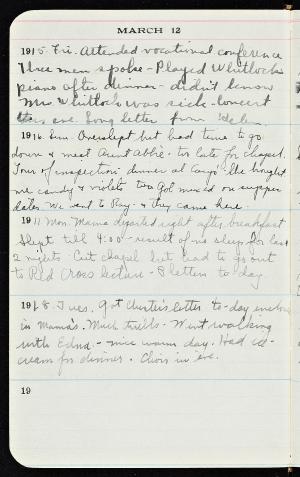 MARCH 12
1915 Fri. Attended vocational conference
Three men spoke - Played Whitlock's
piano after dinner - didn't know
Mrs Whitlock was sick - concert
this eve. Long letter from Helen.
1916 Sun. Overslept but had time to go
down & meet Aunt Abbie - too late for chapel.
Tour of inspection: dinner at She bought
me candy & violets too Got mixed on supper
dates. We went to Ray - & they came here.
1917 Mon. Mama departed right after breakfast
Slept till 4:00 - result of no sleep for last
2 nights. Cut chapel but had to go out
to Red Cross lecture - 8 letters to-day
1918 Tues. Got letter to-day
in Mama's. Much thrills - Went walking
with Edna - nice warm day. Had ice-
cream for dinner. Choir in eve.
19